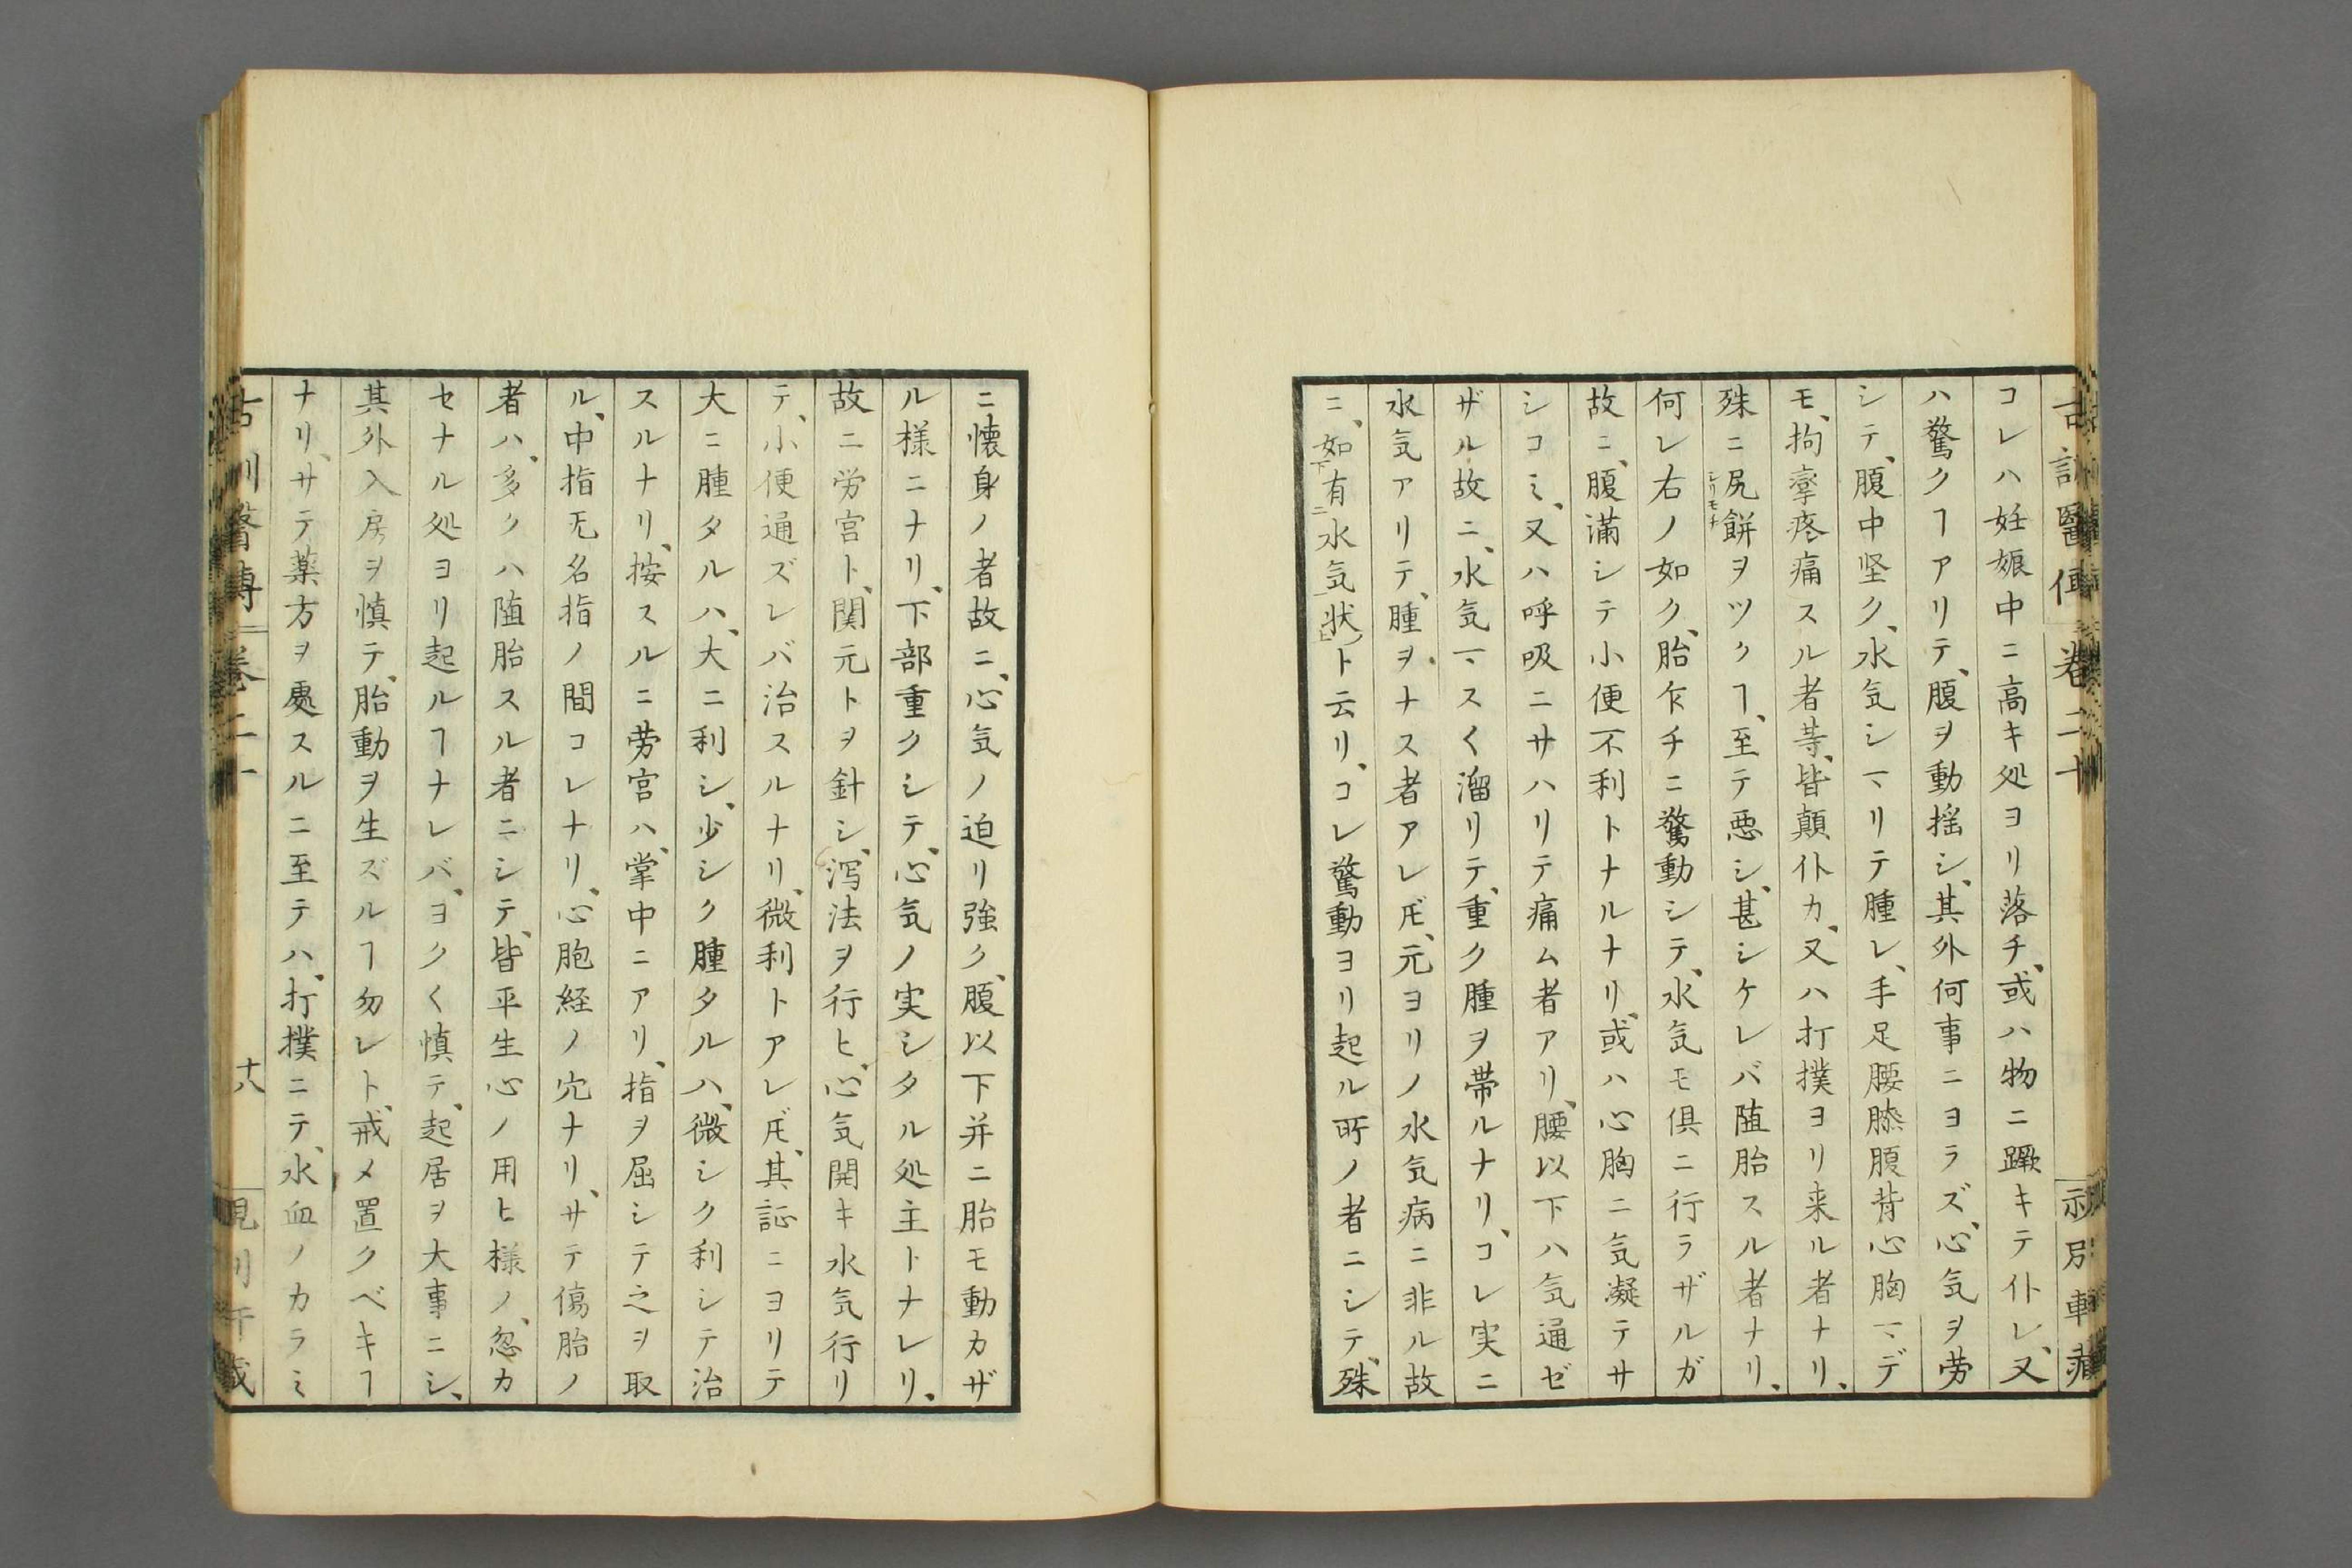 古訓醫傳 卷二十
コレハ妊娠中ニ高キ処ヨリ落チ、或ハ物ニ蹶キテ仆レ、又
ハ驚クヿアリテ、腹ヲ動揺シ、其外何事ニヨラズ、心気ヲ労
シテ、腹中坚ク、水気シマリテ腫レ、手足腰膝腹背心胸マデ
モ、拘攣疼痛スル者䒭、皆顛仆カ、又ハ打撲ヨリ来ル者ナリ、
殊ニ尻餅ヲツクヿ、至テ悪シ、甚シケレバ随胎スル者ナリ、
シリモチ
何レ右ノ如ク、胎忽チニ驚動シテ、水気モ倶ニ行ラザルガ
故ニ、腹満シテ小便不利トナルナリ、或ハ心胸ニ気凝テサ
シコミ、又ハ呼吸ニサハリテ痛ム者アリ、腰以下ハ気通ゼ
ザル故ニ、水気マス〱溜リテ、重ク腫ヲ帯ルナリ、コレ実ニ
水気アリテ、腫ヲナス者アレ𪜈、元ヨリノ水気病ニ非ル故
ニ、如下有二水気一状上ト云リ、コレ驚動ヨリ起ル所ノ者ニシテ、殊
ニ懐身ノ者故ニ、心気ノ迫リ強ク、腹以下并ニ胎モ動カザ
ル様ニナリ、下部重クシテ、心気ノ実シタル処主トナレリ、
故ニ労宮ト、関元トヲ針シ、瀉法ヲ行ヒ、心気開キ水気行リ
テ、小便通ズレバ治スルナリ、微利トアレ𪜈、其証ニヨリテ
大ニ腫タルハ、大ニ利シ、少シク腫タルハ、微シク利シテ治
スルナリ、按スルニ労宮ハ、掌中ニアリ、指ヲ屈シテ之ヲ取
ル、中指无名指ノ間コレナリ、心胞経ノ穴ナリ、サテ傷胎ノ
者ハ、多クハ随胎スル者ニシテ、皆平生心ノ用ヒ様ノ、忽カ
セナル処ヨリ起ルヿナレバ、ヨク〱慎テ、起居ヲ大事ニシ、
其外入房ヲ慎テ、胎動ヲ生ズルヿ勿レト、戒メ置クベキヿ
ナリ、サテ薬方ヲ處スルニ至テハ、打撲ニテ、水血ノカラミ
十八